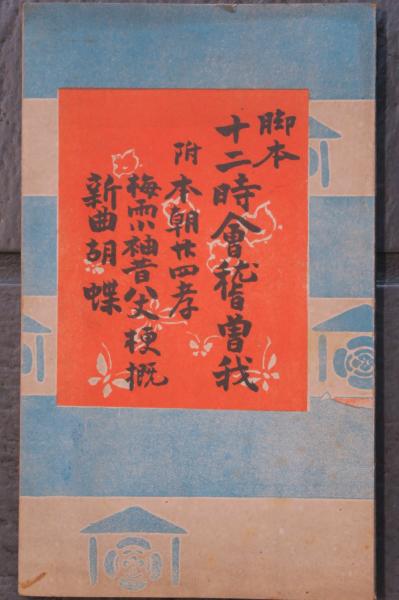 脚本
十二時會稽曽我
附 本朝廿四孝
梅雨袖昔八丈梗概
新曲胡蝶